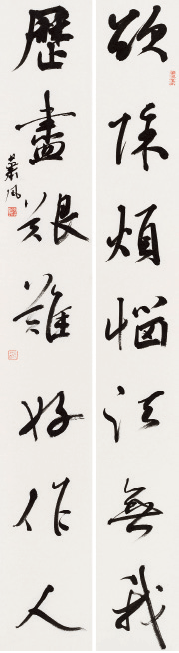 欲除煩惱須無我
歷盡艱難好作人
慕風